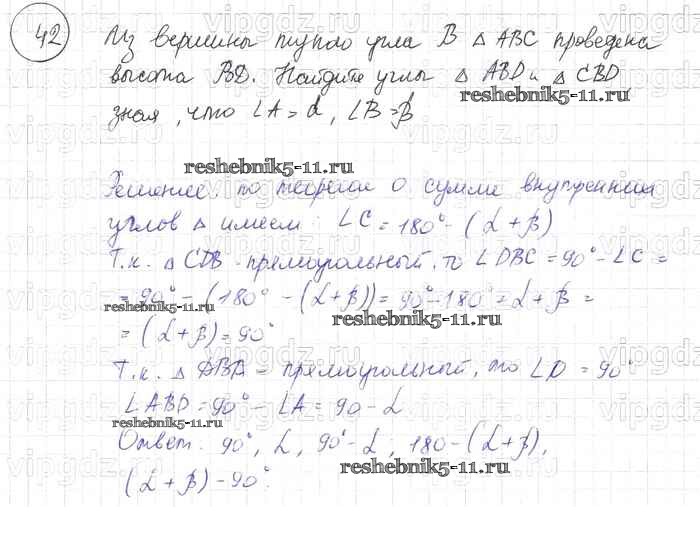 42 Из вершины тупого угла B △ ABC проведена
высота BD. Найдите углы △ ABD и △ CBD
зная, что ∠A = α, ∠B = β
reshebnik5-11.ru
reshebnik5-11.ru
Решение. по теореме о сумме внутренних
углов △ имеем: ∠C = 180° - (α + β)
Т.к. △ CDB - прямоугольный, то ∠DBC = 90° - ∠C =
= 90° - (180° - (α + β)) = 90° - 180° = α + β =
reshebnik5-11.ru
reshebnik5-11.ru
= (α + β) = 90°
Т.к. △ DBA - прямоугольный, то ∠D = 90°
∠ABD = 90° - ∠A = 90 - α
reshebnik5-11.ru
Ответ: 90°, α, 90° - α, 180 - (α + β),
reshebnik5-11.ru
(α + β) - 90°.